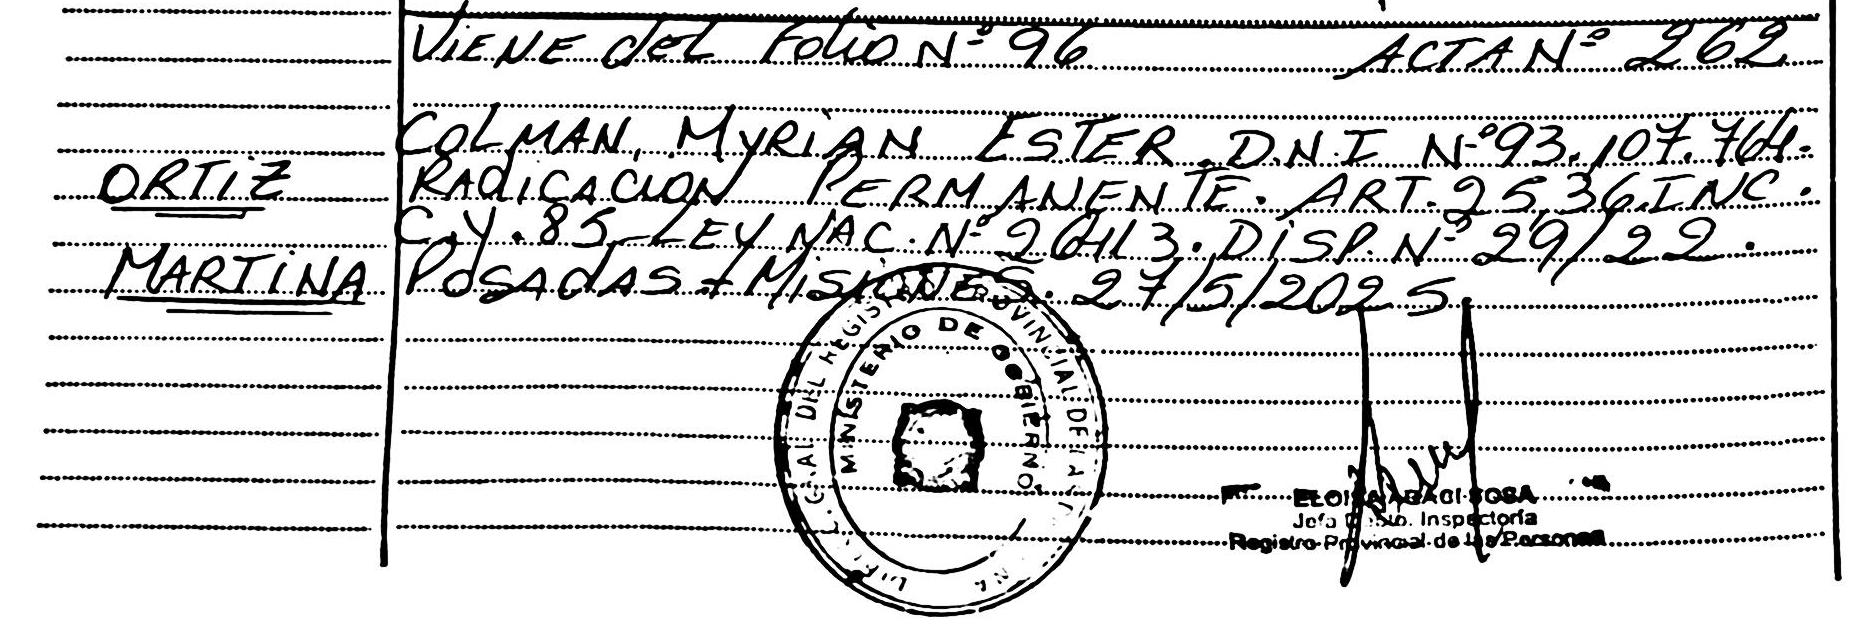 VIENE del Folio Nº 96 ACTA Nº 262
COLMAN, MYRIAN ESTER. D.N.I Nº 93.107.764.
ORTIZ
RADICACION PERMANENTE. ART. 25, 36, INC.
C.Y. 85 LEY NAC. Nº 26413. DISP. Nº 29/22.
MARTINA
POSADAS - MISIONES. 27/5/2025
MINISTERIO DE GOBIERNO
GRAL DEL REGISTRO PROVINCIAL DE LAS
ELOISA SOSA
Jefa Dpto. Inspectoría
Registro Provincial de las Personas